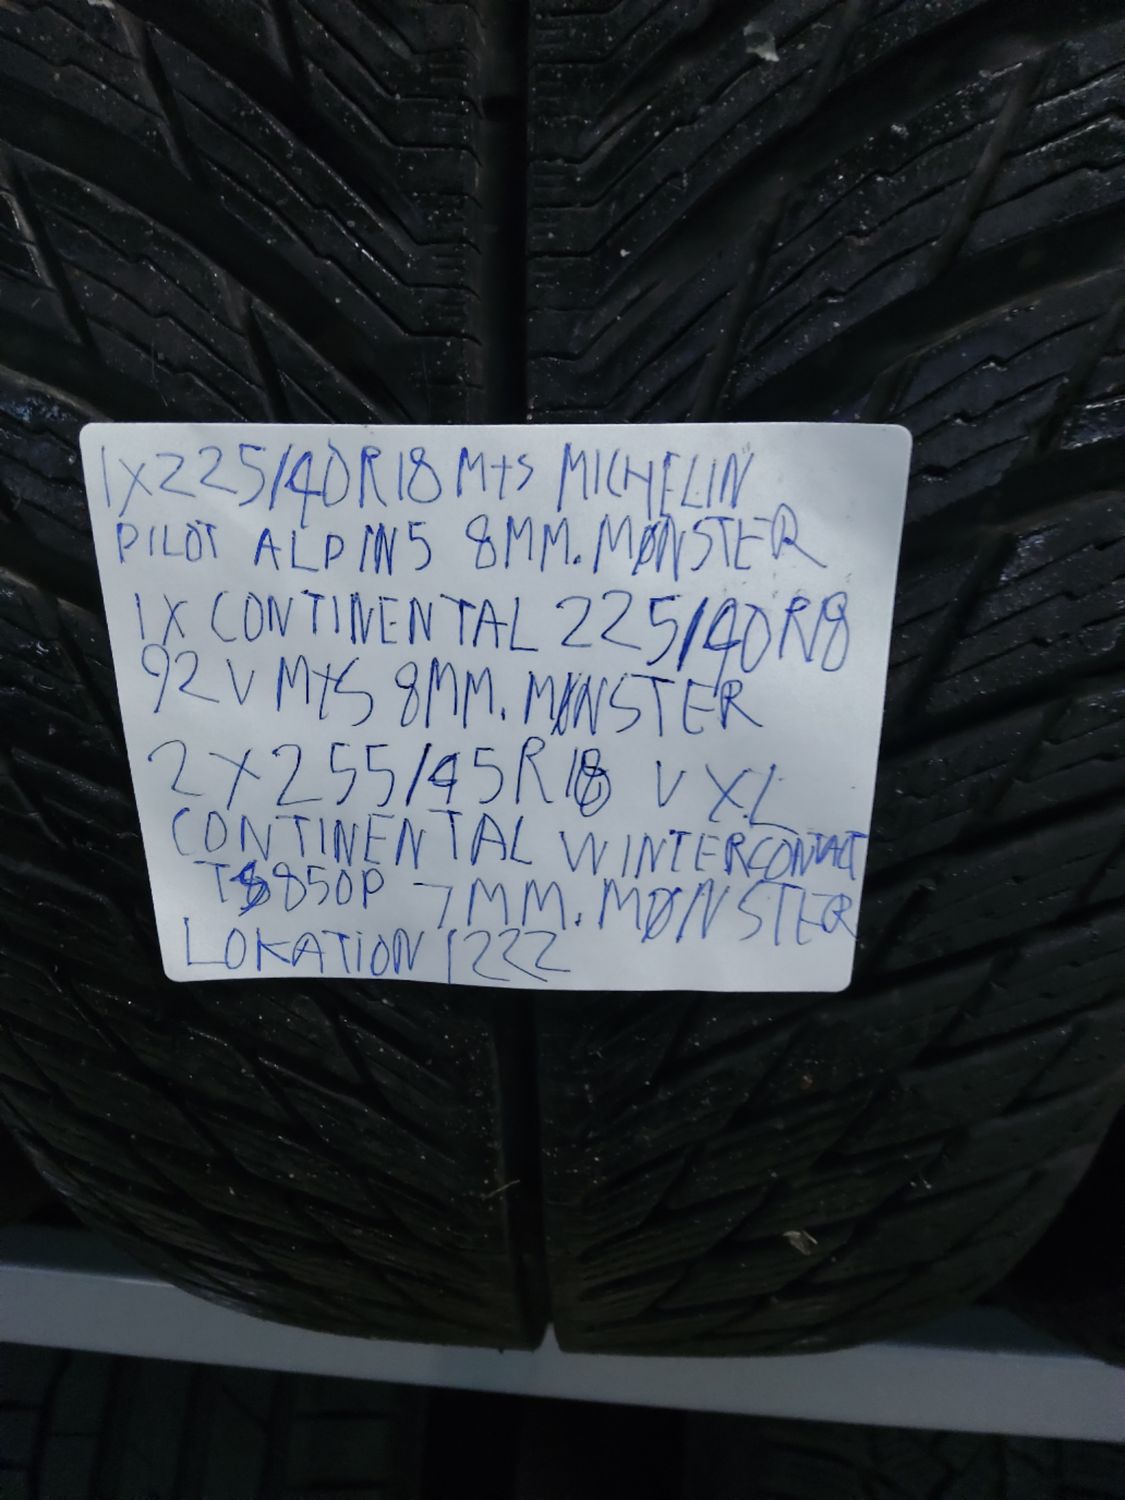 1X225/40R18 M+S MICHELIN
PILOT ALPIN5 8MM. MØNSTER
1X CONTINENTAL 225/40R18
92V M+S 8MM. MØNSTER
2X255/45R18 V XL
CONTINENTAL WINTERCONTACT
TS850P 7MM. MØNSTER
LOKATION 1222